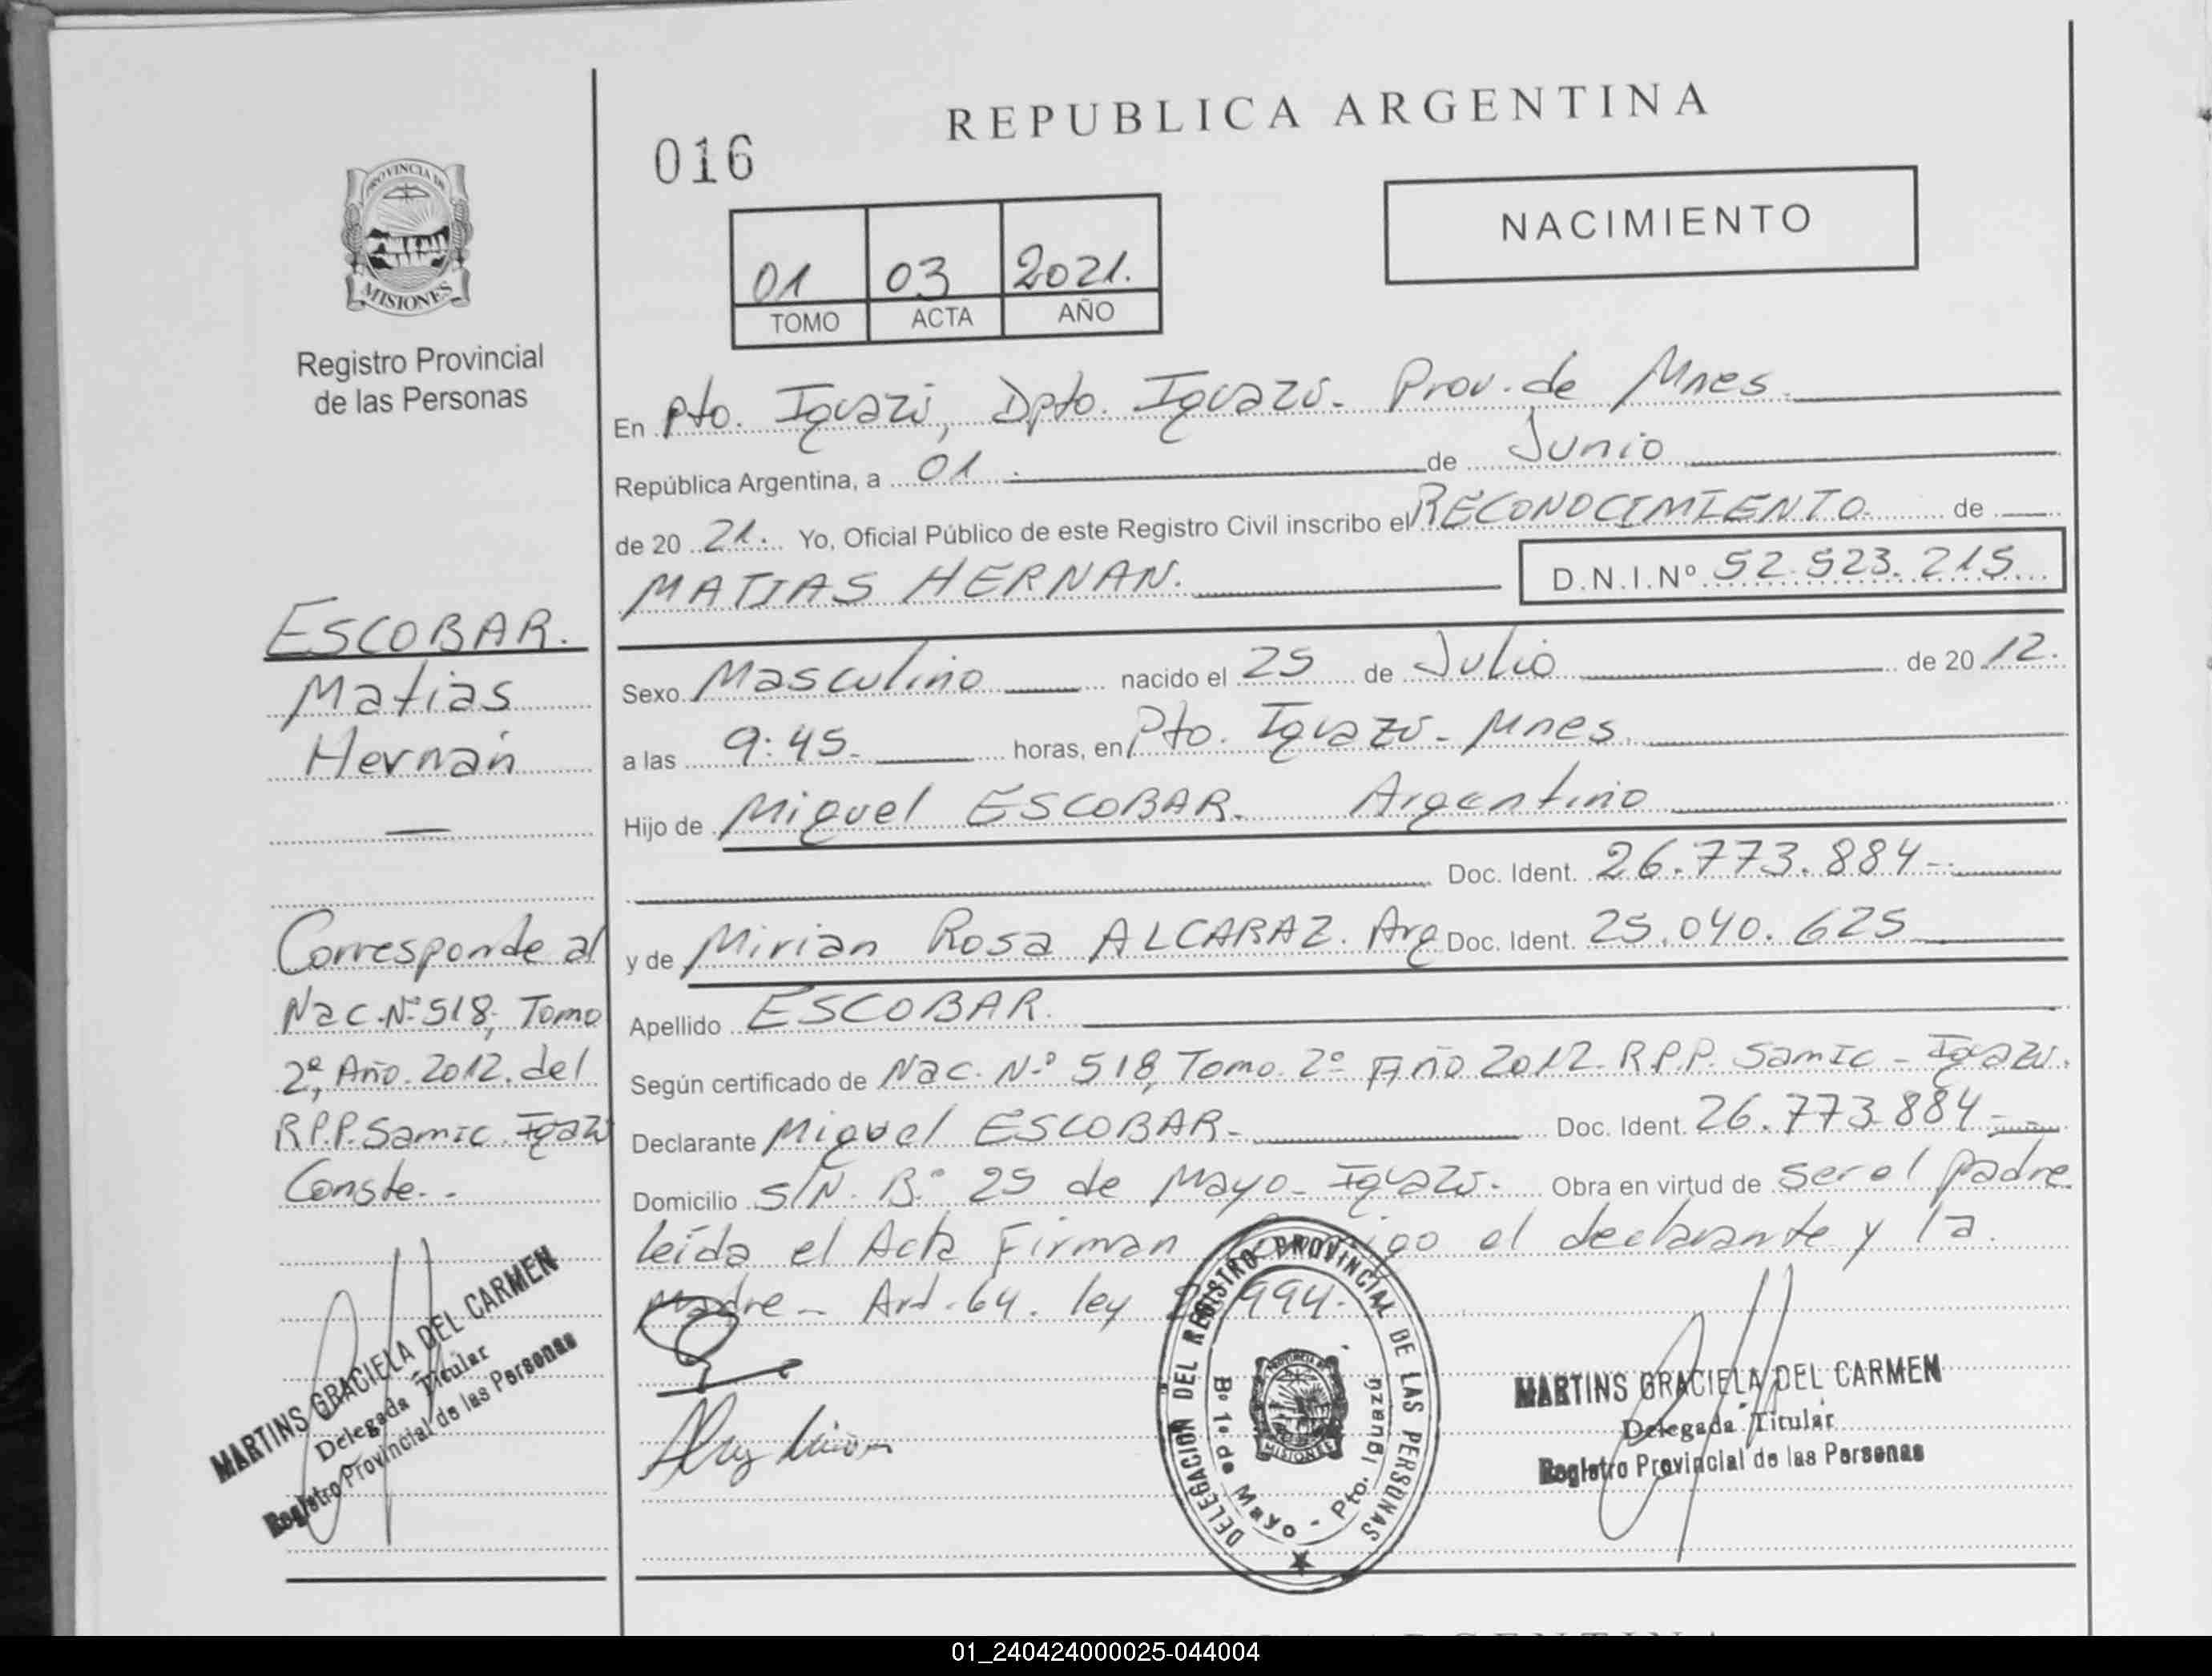 REPUBLICA ARGENTINA
016
NACIMIENTO
PROVINCIA DE
MISIONES
Registro Provincial
de las Personas
01 03 2021.
TOMO ACTA AÑO
En Pto. Iguazú, Dpto. Iguazú. Prov. de Mnes.
República Argentina, a 01. de Junio
de 20 21. Yo, Oficial Público de este Registro Civil inscribo el RECONOCIMIENTO de
MATIAS HERNAN. D.N.I.Nº 52.523.215
Sexo Masculino nacido el 25 de Julio de 20 12.
a las 9:45. horas, en Pto. Iguazú - Mnes.
Hijo de Miguel ESCOBAR. Argentino
Doc. Ident. 26.773.884-
y de Mirian Rosa ALCARAZ. Arg Doc. Ident. 25.040.625
Apellido ESCOBAR.
Según certificado de Nac. Nº 518, Tomo 2º Año 2012. R.P.P. Samic - Iguazú.
Declarante Miguel ESCOBAR- Doc. Ident. 26.773.884-
Domicilio S/N. B.º 25 de Mayo - Iguazú. Obra en virtud de ser el padre
leída el Acta Firman el declarante y la
Madre - Art. 64. ley 994.
ESCOBAR.
Matias
Hernán
Corresponde al
Nac. Nº 518, Tomo
2º, Año 2012. del
R.P.P. Samic Iguazú
Conste.
MARTINS GRACIELA DEL CARMEN
Delegada Titular
Registro Provincial de las Personas
DELEGACION DEL REGISTRO PROVINCIAL DE LAS PERSONAS
Bº 1º de Mayo - Pto. Iguazú
PROVINCIA DE
MISIONES
MARTINS GRACIELA DEL CARMEN
Delegada Titular
Registro Provincial de las Personas
01_240424000025-044004